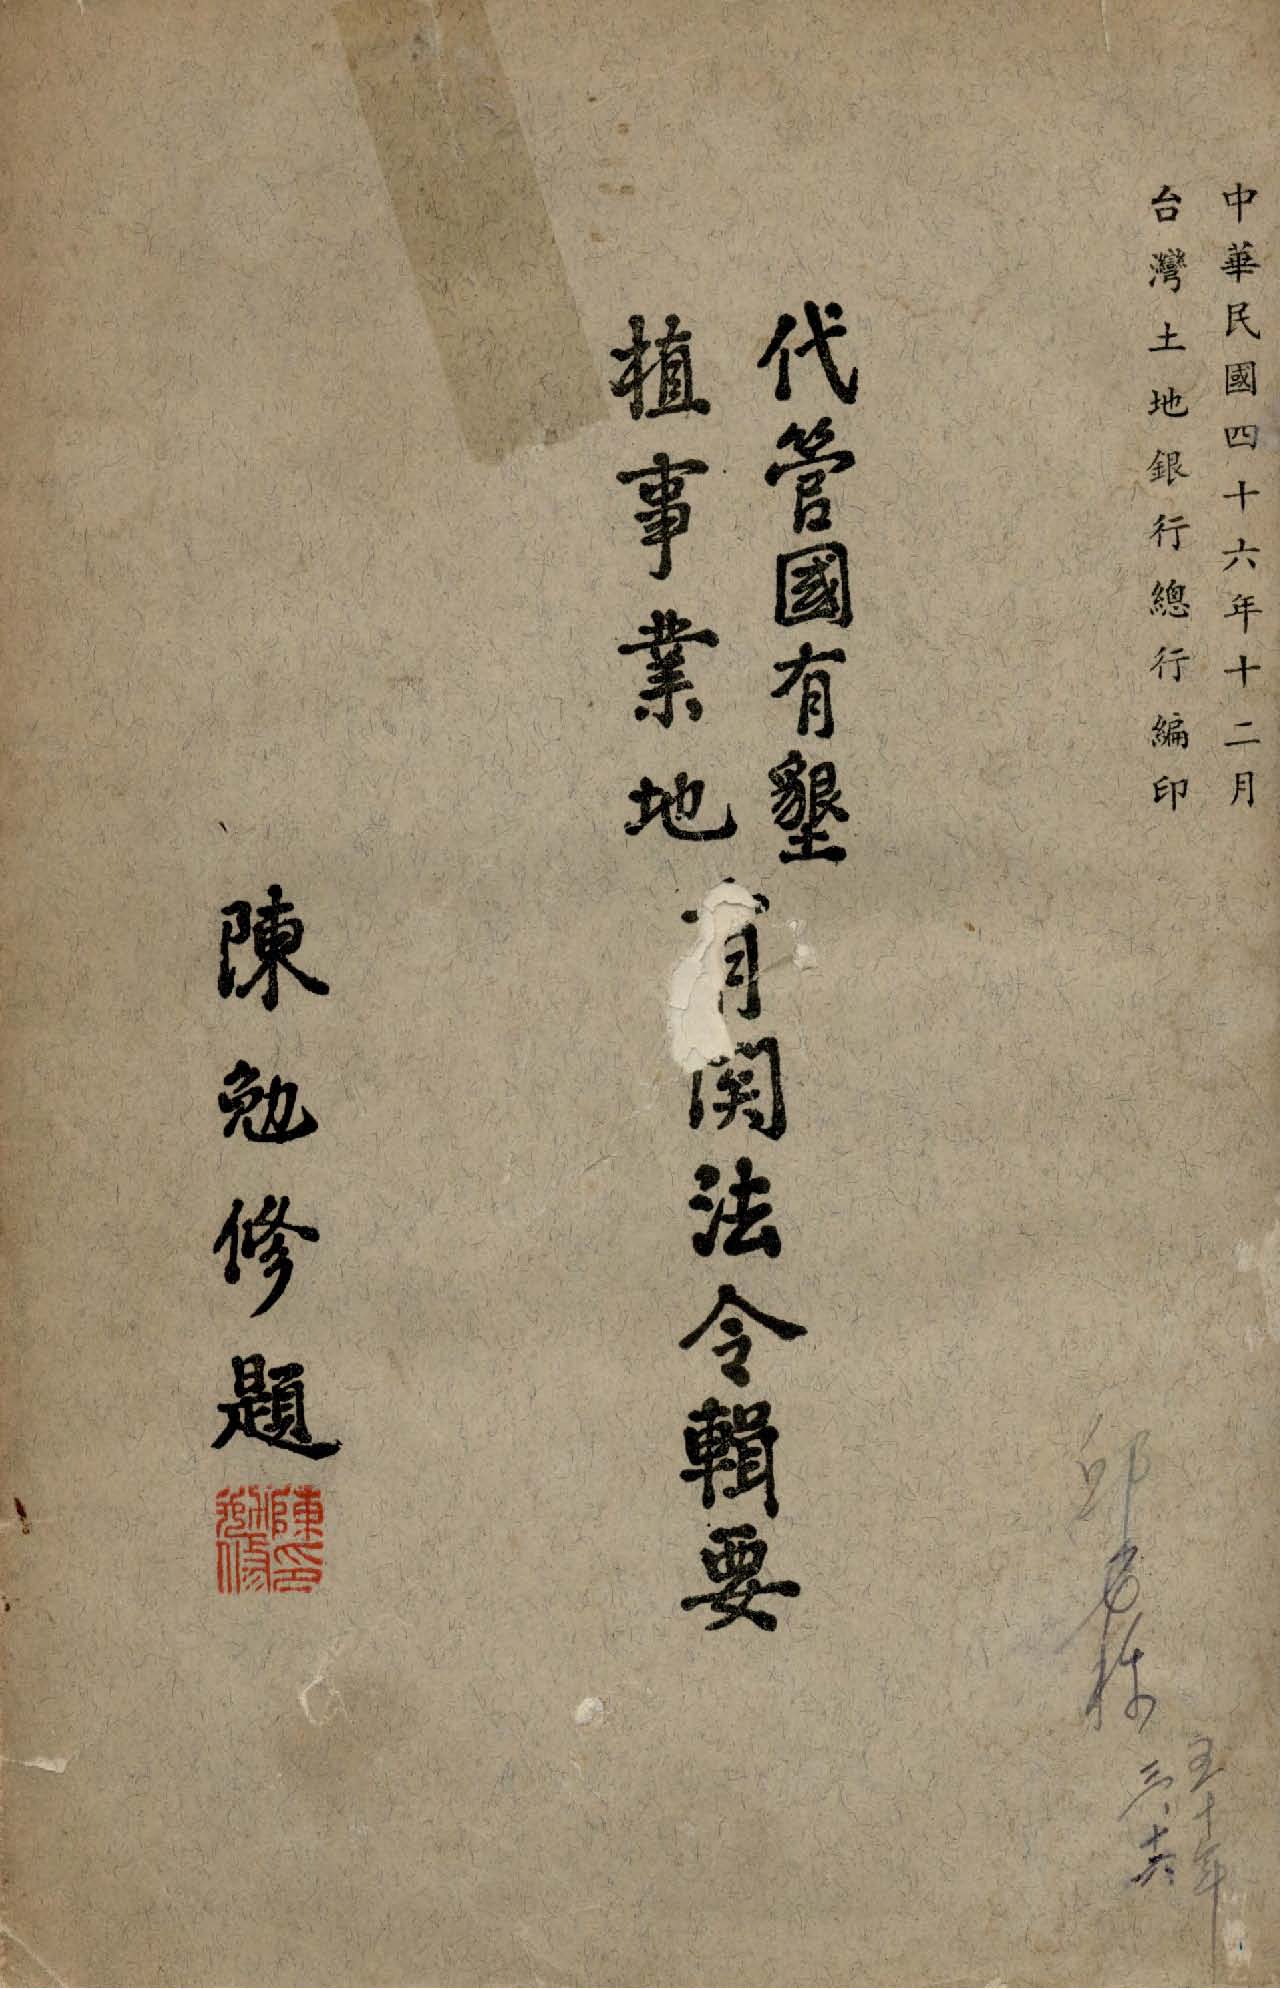 中華民國四十六年十二月
台灣土地銀行總行編印
代管國有墾
植事業地
有関法令輯要
陳勉修題
陳印
勉修
邱
五十年
三、十六